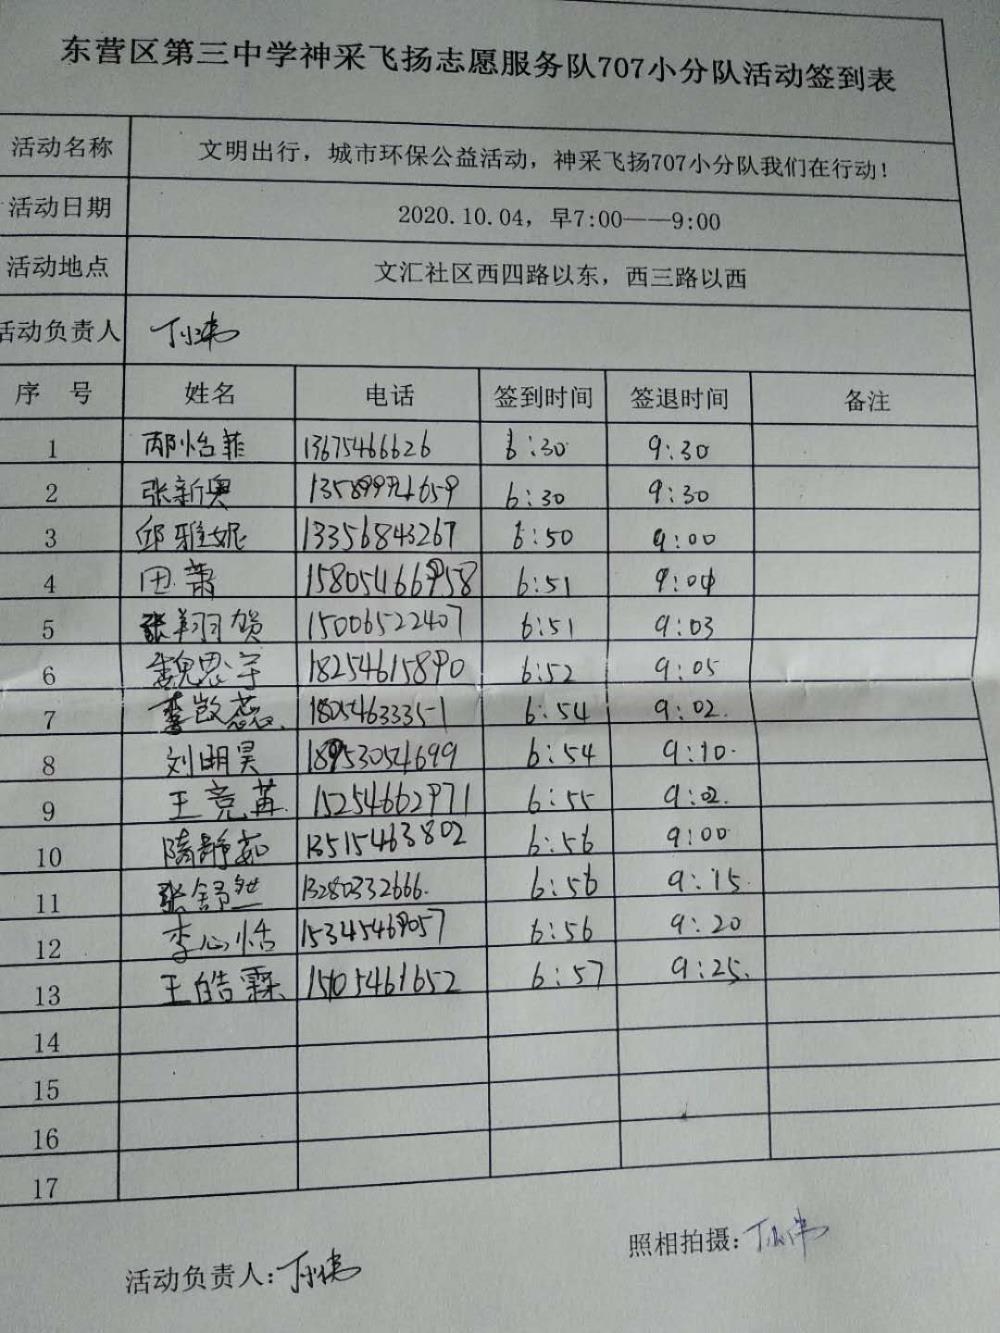 东营区第三中学神采飞扬志愿服务队707小分队活动签到表
活动名称 文明出行，城市环保公益活动，神采飞扬707小分队我们在行动！
活动日期 2020.10.04，早7:00——9:00
活动地点 文汇社区西四路以东，西三路以西
活动负责人
序 号 姓名 电话 签到时间 签退时间 备注
1 邴怡菲 13675466626 6:30 9:30
2 张新奥 6:30 9:30
3 邱雅妮 13356843267 6:50 9:00
4 田萧 15805466958 6:51 9:04
5 张翔贺 15006522407 6:51 9:03
6 魏思宇 18254615890 6:52 9:05
7 6:54 9:02
8 刘明昊 18953054699 6:54 9:10
9 王竞苒 15254662971 6:55 9:02
10 隋静茹 13515463802 6:56 9:00
11 张舒然 13280332666 6:56 9:15
12 李心恬 15345469057 6:56 9:20
13 王皓霖 15105461652 6:57 9:25
14
15
16
17
照相拍摄：
活动负责人：